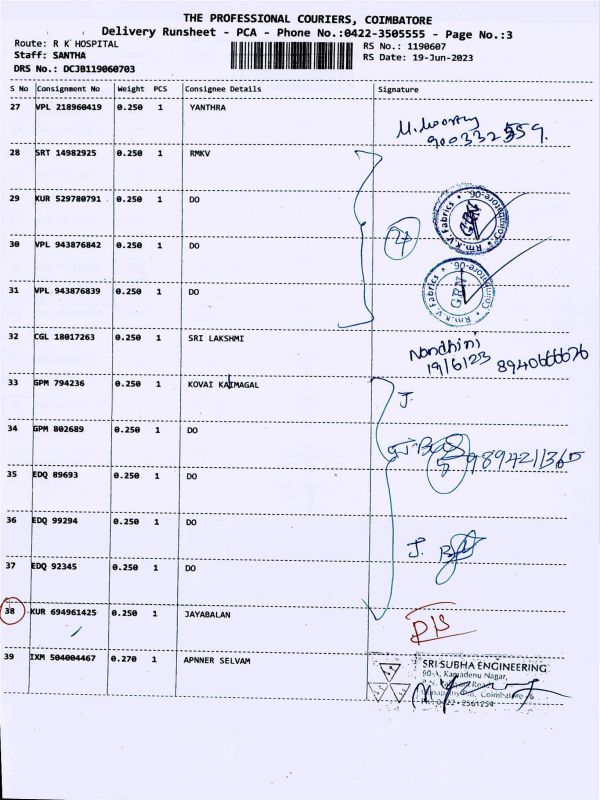 THE PROFESSIONAL COURIERS, COIMBATORE
Delivery Runsheet - PCA - Phone No.:0422-3505555 - Page No.:3
Route: R K HOSPITAL
Staff: SANTHA
DRS No.: DCJB119060703
RS No.: 1190607
RS Date: 19-Jun-2023
S No Consignment No Weight PCS Consignee Details Signature
27 VPL 218960419 0.250 1 YANTHRA
28 SRT 14982925 0.250 1 RMKV
29 KUR 529780791 0.250 1 DO
Rm.K.V. Fabrics * Coimbatore-06. *
GRN
30 VPL 943876842 0.250 1 DO
31 VPL 943876839 0.250 1 DO
Rm.K.V. Fabrics * Coimbatore-06. *
GRN
32 CGL 18017263 0.250 1 SRI LAKSHMI
Nandhini
19/6/23
33 GPM 794236 0.250 1 KOVAI KAIMAGAL
J.
34 GPM 802689 0.250 1 DO
9894211365
35 EDQ 89693 0.250 1 DO
36 EDQ 99294 0.250 1 DO
37 EDQ 92345 0.250 1 DO
38 KUR 694961425 0.250 1 JAYABALAN
39 IXM 504004467 0.270 1 APNNER SELVAM
SRI SUBHA ENGINEERING
Kamadenu Nagar,